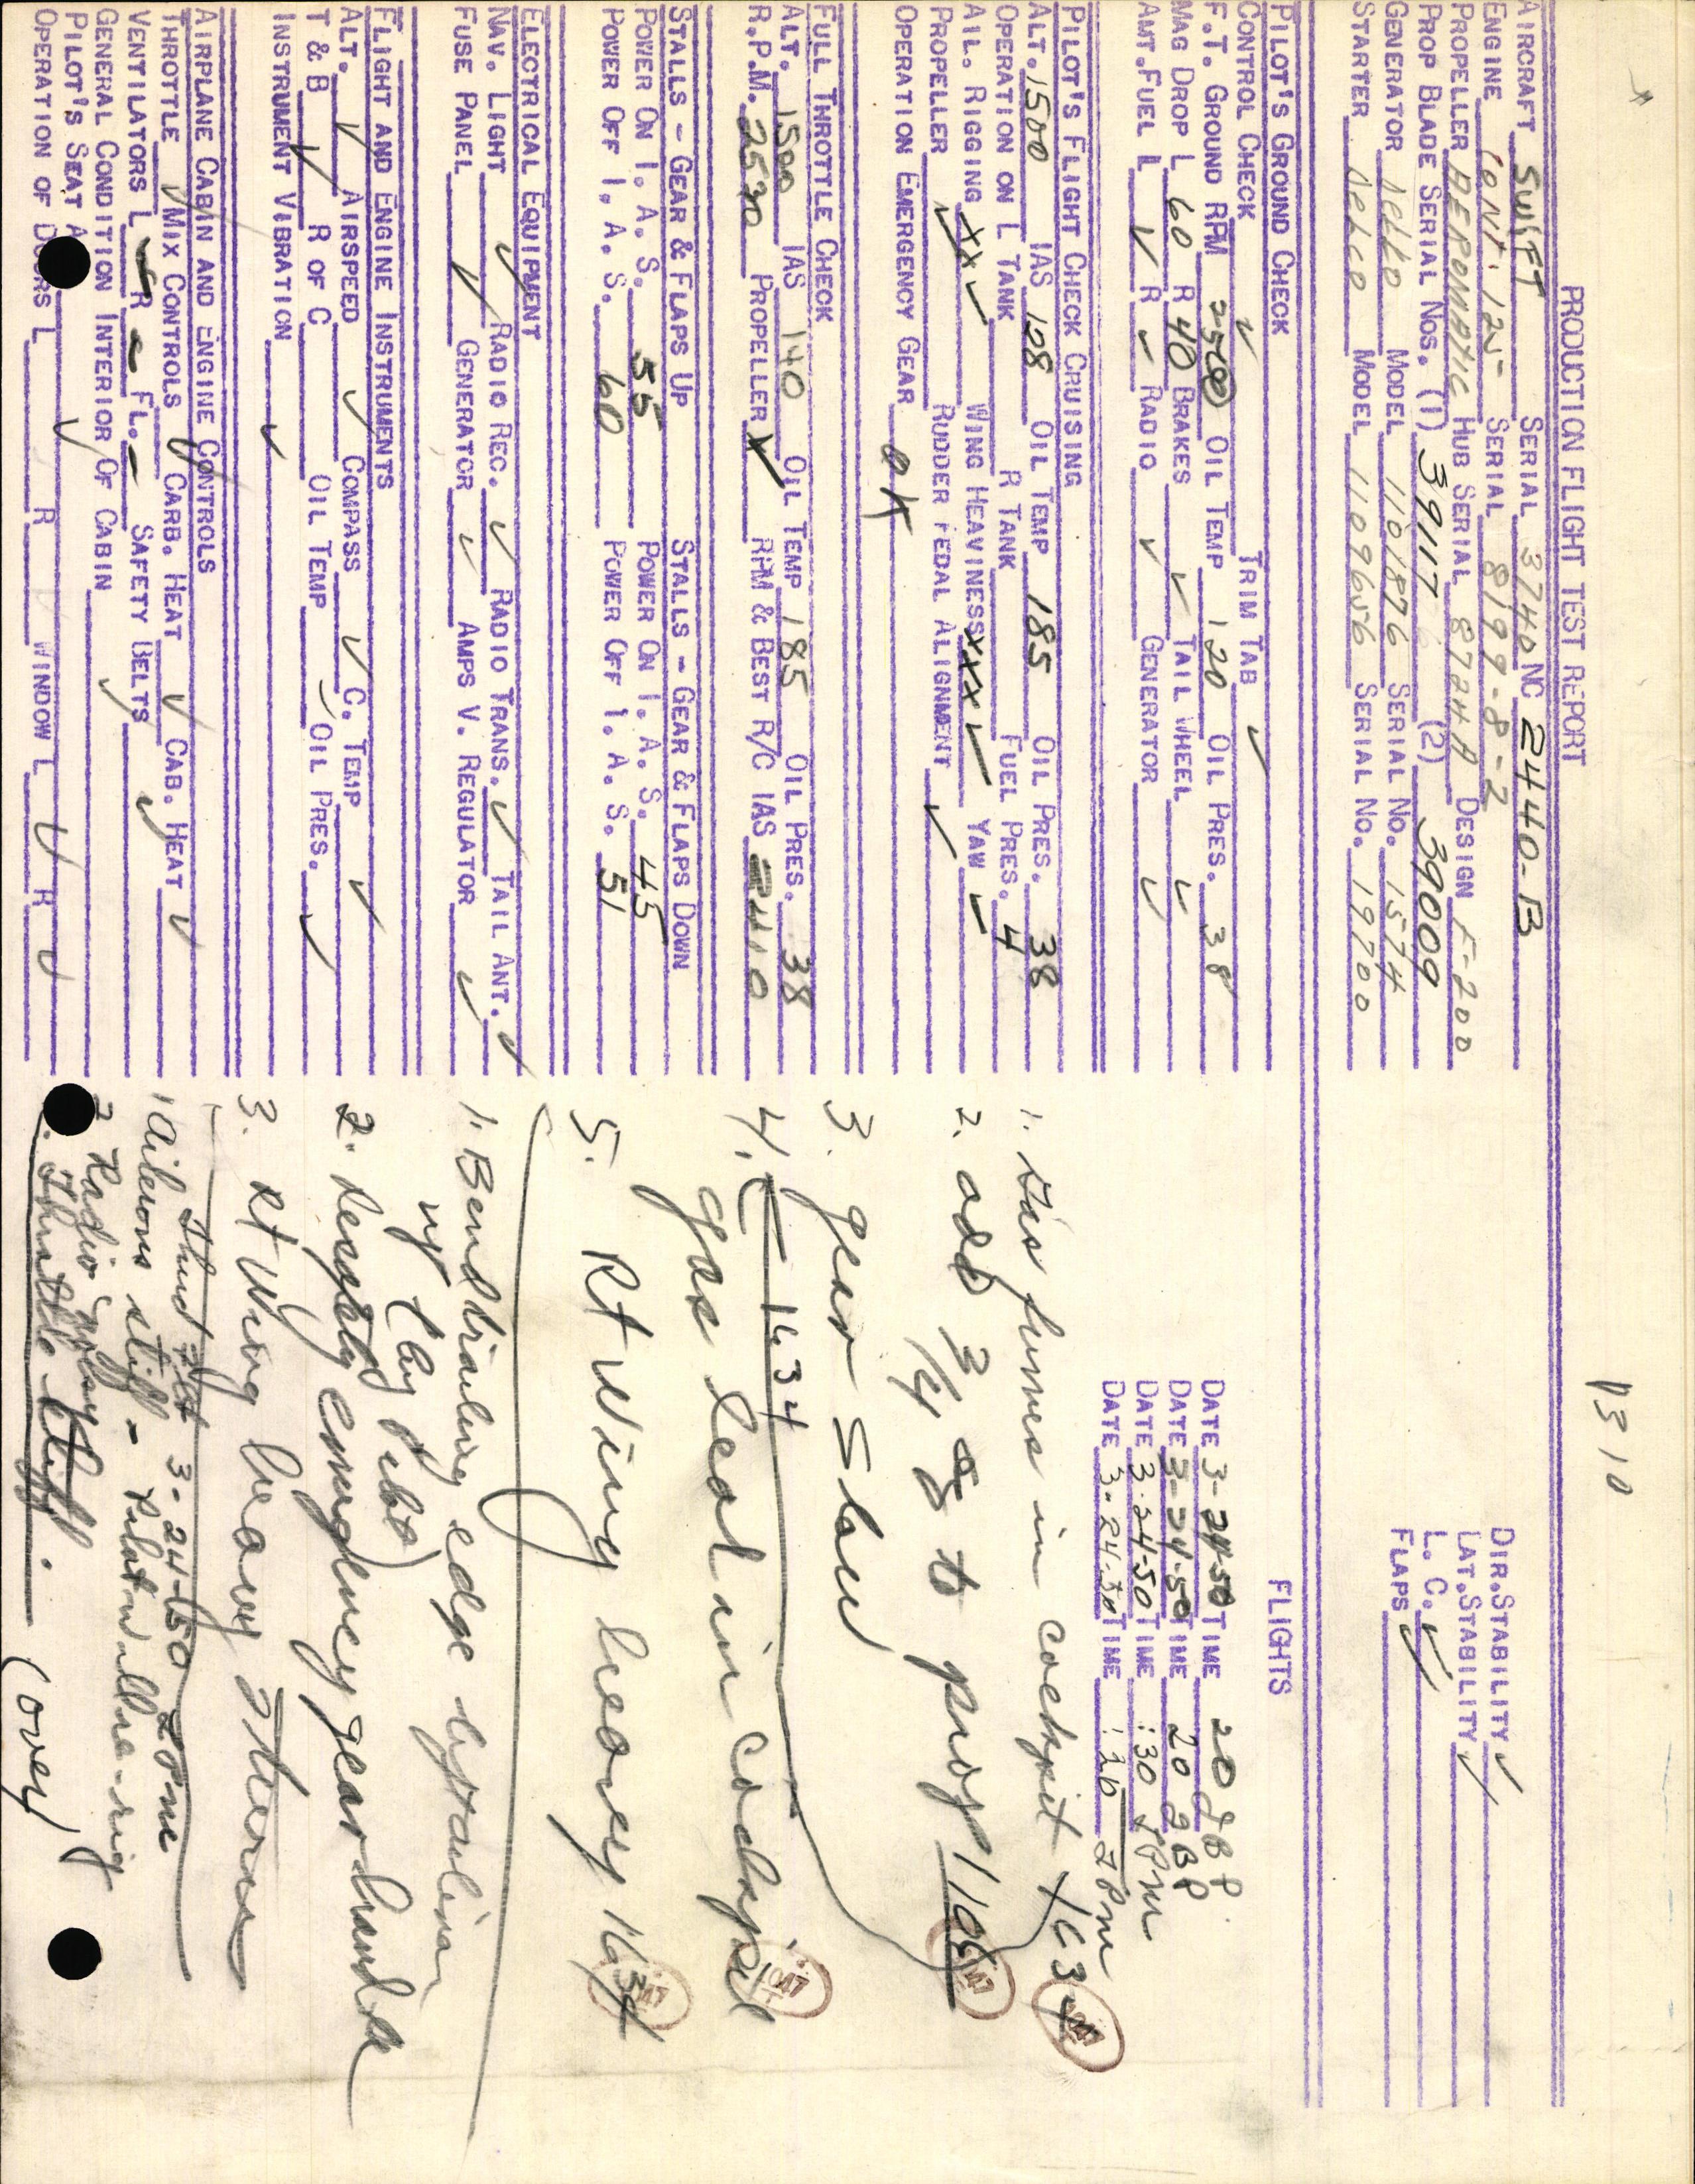 1310
PRODUCTION FLIGHT TEST REPORT
AIRCRAFT SWIFT SERIAL 3740 NC 2440-B
ENGINE CONT. 125 SERIAL 8199-8-2
PROPELLER AEROMATIC HUB SERIAL 8724A DESIGN F-200
PROP BLADE SERIAL NOS. (1) 39117 (2) 39009
GENERATOR Delko MODEL 1101876 SERIAL NO. 1574
STARTER Delco MODEL 1109656 SERIAL NO. 19700
DIR. STABILITY ✓
LAT. STABILITY ✓
L. C. ✓
FLAPS ✓
PILOT'S GROUND CHECK
CONTROL CHECK ✓ TRIM TAB ✓
F.T. GROUND RPM OIL TEMP 120 OIL PRES. 38
MAG DROP L 60 R 40 BRAKES ✓ TAIL WHEEL ✓
AMT. FUEL L ✓ R ✓ RADIO ✓ GENERATOR ✓
PILOT'S FLIGHT CHECK CRUISING
ALT. 1500 IAS 128 OIL TEMP 185 OIL PRES. 38
OPERATION ON L TANK R TANK FUEL PRES. 4
AIL. RIGGING XX ✓ WING HEAVINESS XXX ✓ YAW ✓
PROPELLER ✓ RUDDER PEDAL ALIGNMENT ✓
OPERATION EMERGENCY GEAR OK
FULL THROTTLE CHECK
ALT. 1500 IAS 140 OIL TEMP 185 OIL PRES. 38
R.P.M. PROPELLER ✓ RPM & BEST R/C IAS
STALLS - GEAR & FLAPS UP STALLS - GEAR & FLAPS DOWN
POWER ON I. A. S. 55 POWER ON I. A. S. 45
POWER OFF I. A. S. 60 POWER OFF I. A. S. 51
ELECTRICAL EQUIPMENT
NAV. LIGHT ✓ RADIO REC. ✓ RADIO TRANS. ✓ TAIL ANT. ✓
FUSE PANEL ✓ GENERATOR ✓ AMPS V. REGULATOR ✓
FLIGHT AND ENGINE INSTRUMENTS
ALT. ✓ AIRSPEED ✓ COMPASS ✓ C. TEMP ✓
T & B ✓ R OF C OIL TEMP ✓ OIL PRES. ✓
INSTRUMENT VIBRATION ✓
AIRPLANE CABIN AND ENGINE CONTROLS
THROTTLE ✓ MIX CONTROLS ✓ CARB. HEAT ✓ CAB. HEAT ✓
VENTILATORS L R FL. SAFETY BELTS ✓
GENERAL CONDITION INTERIOR OF CABIN ✓
PILOT'S SEAT ✓
OPERATION OF DOORS L R WINDOW L ✓ R ✓
FLIGHTS
DATE 3-24-50 TIME 20 JBP
DATE 3-24-50 TIME 20 JBP
DATE 3-24-50 TIME :30
DATE 3-24-50 TIME :20
1. Gas fumes in cockpit 1634
2. add 3/4 to prop
3. gear slow
4. 1634
gas leak in cockpit
5. Rt Wing heavy 1634
1. Bend trailing edge
2. emergency gear handle
3. Rt Wing heavy
Third flt 3-24-50
1 Ailerons stiff -
2 Radio noisy
3. Throttle stiff.
(over)